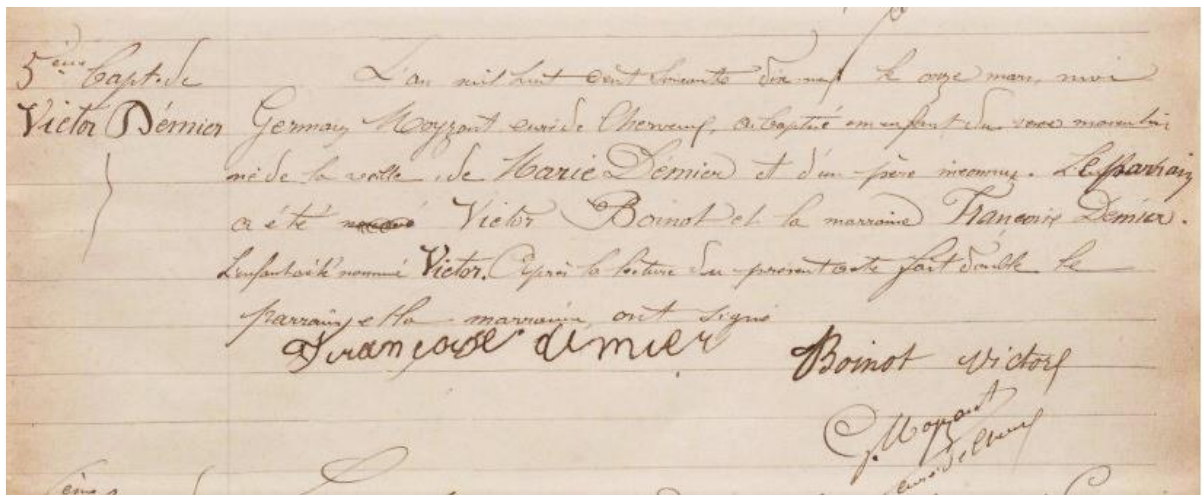 5ème Bapt. de
Victor Démier
L'an mil huit cent soixante dix neuf le onze mars, moi
Germain Moyzant curé de Cherveux, ai baptisé un enfant du sexe masculin
né de la veille, de Marie Démier et d'un père inconnu. Le parrain
a été Victor Boinot et la marraine Françoise Démier.
L'enfant a été nommé Victor. Après la lecture du présent acte fait double le
parrain et la marraine ont signé
Françoise démier
Boinot Victor
G. Moyzant
curé de Cherv